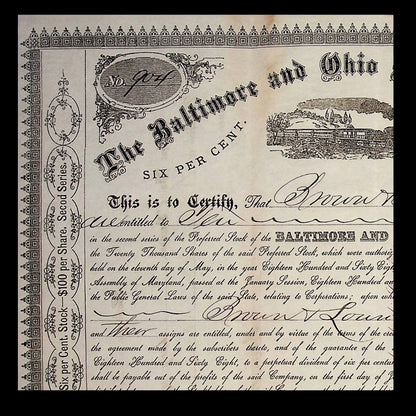 No. 904
The Baltimore and Ohio
SIX PER CENT.
This is to Certify, That Brown &
are entitled to Ten
in the second series of the Preferred Stock of the BALTIMORE AND
the Twenty Thousand Shares of the said Preferred Stock, which were authoriz
held on the eleventh day of May, in the year Eighteen Hundred and Sixty Eigh
Assembly of Maryland, passed at the January Session, Eighteen Hundred and
the Public General Laws of the said State, relating to Corporations; upon whic
Brown &
and Their assigns are entitled, under and by virtue of the terms of the circu
the agreement made by the subscribers thereto, and of the guarantee of the
Eighteen Hundred and Sixty Eight, to a perpetual dividend of six per centum
shall be payable out of the profits of the said Company, on the first day of J
Six per Cent. Stock $100 per Share. Secod Series.